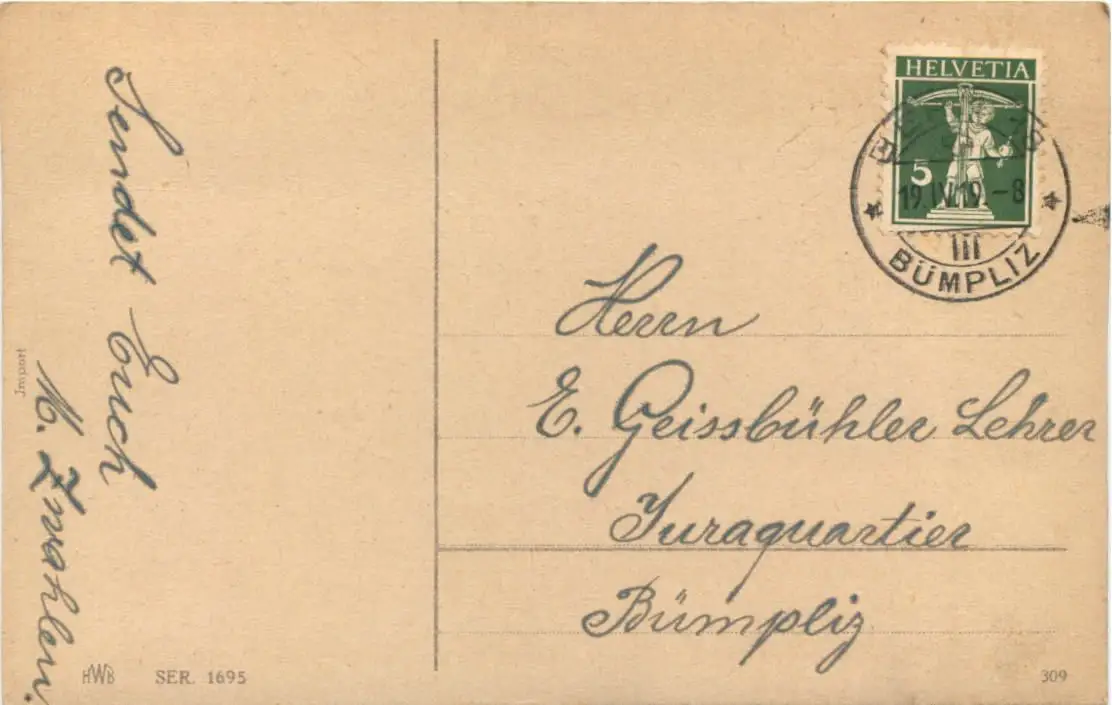 Sendet Euch
M. Zwahlen.
Import
HWB SER. 1695
HELVETIA
5
19.IV.19.-8
III
BÜMPLIZ
Herrn
E. Geissbühler Lehrer
Juraquartier
Bümpliz
309